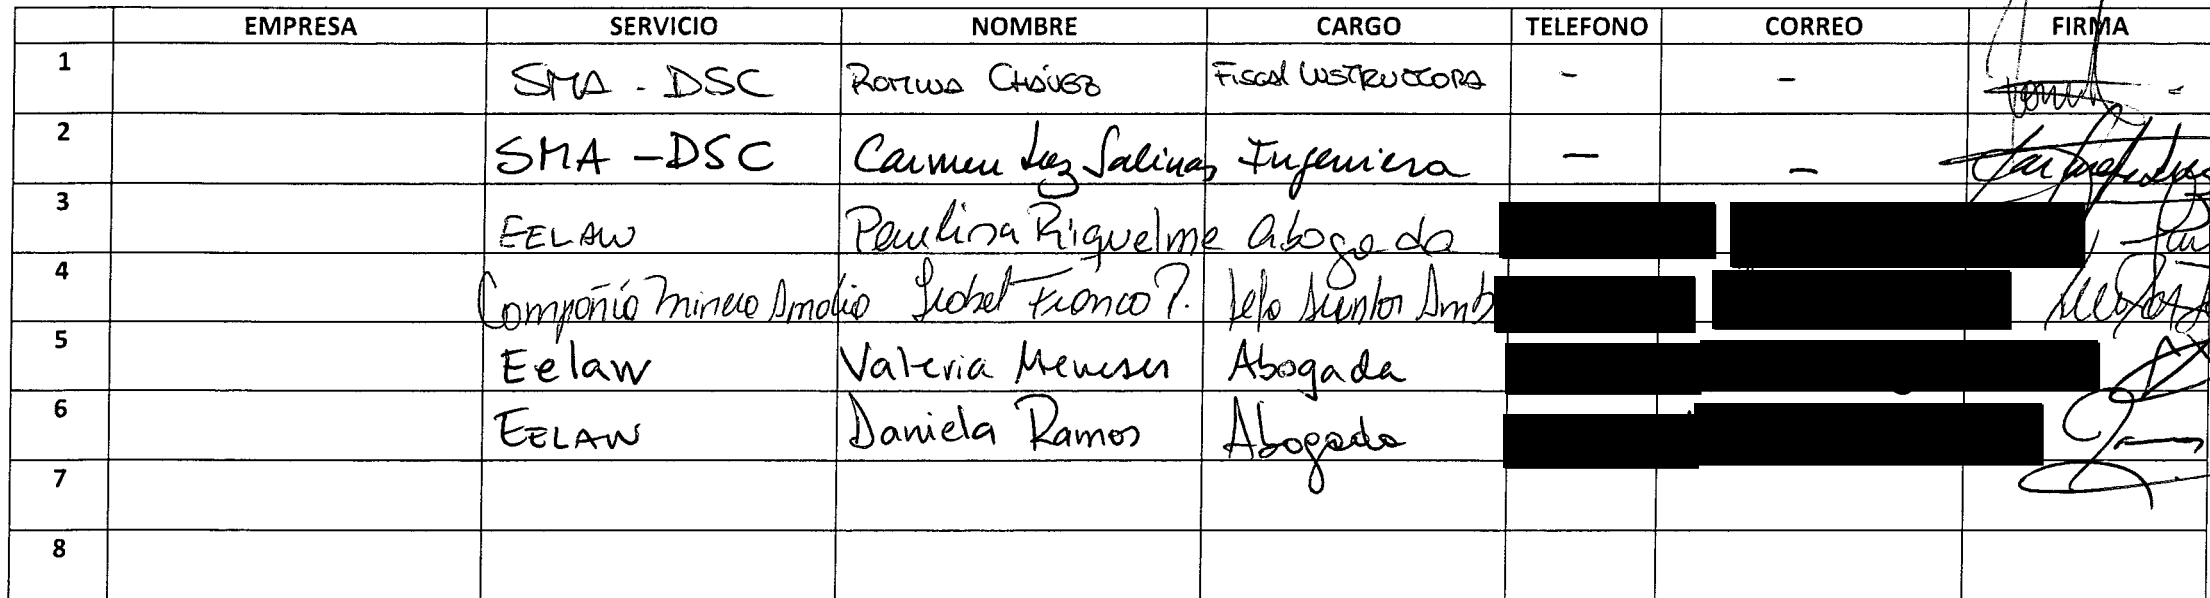 EMPRESA SERVICIO NOMBRE CARGO TELEFONO CORREO FIRMA
1 SMA - DSC ROMINA CHÁVEZ FISCAL INSTRUCTORA - -
2 SMA - DSC Carmen Luz Salinas Ingeniera - -
3 EELAW Paulina Riquelme Abogada
4 Compañía Minera Amalia Isabel Franco P. Jefe Asuntos Amb
5 Eelaw Valeria Meneses Abogada
6 EELAW Daniela Ramos Abogada
7
8